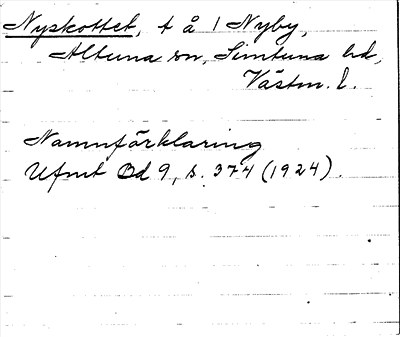 Nyskottet, t å 1 Nyby,
Altuna sn, Simtuna hd,
Västm. l.
Namnförklaring
Ufmt Od 9, s. 374 (1924).